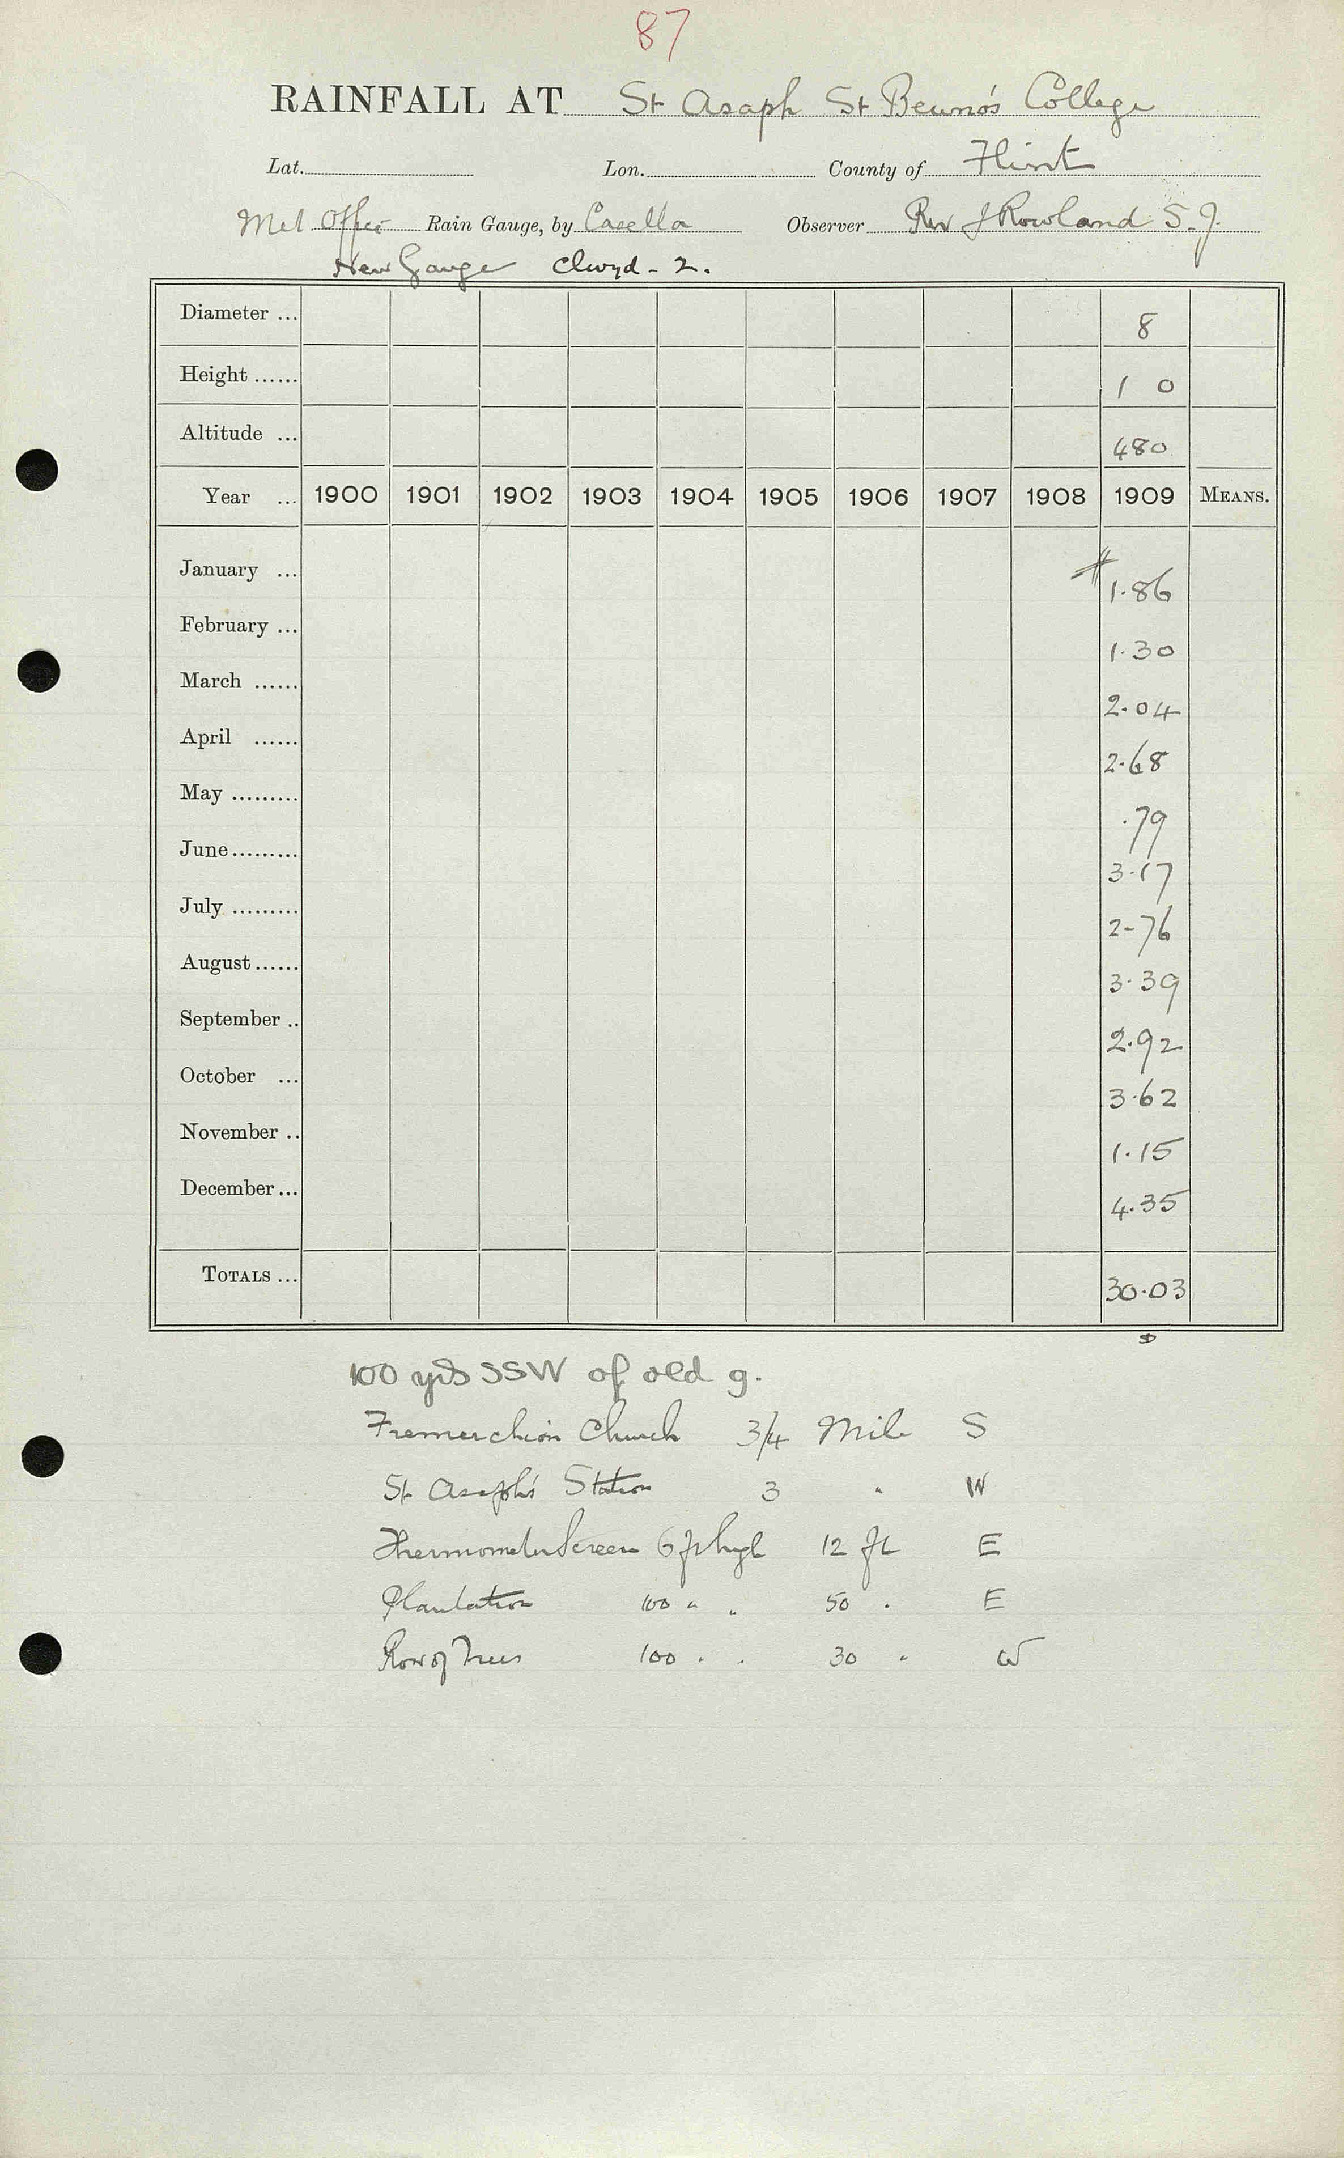 87
RAINFALL AT St Asaph St Beuno's College
Lat. Lon. County of Flint
Met Office Rain Gauge, by Casella Observer Rev J Rowland S.J.
New Gauge Clwyd - 2.
Diameter ... 8
Height ...... 1 0
Altitude ... 480
Year ... 1900 1901 1902 1903 1904 1905 1906 1907 1908 1909 MEANS.
January ... 1.86
February ... 1.30
March ...... 2.04
April ...... 2.68
May ......... .79
June ......... 3.17
July ......... 2-76
August ...... 3.39
September .. 2.92
October ... 3.62
November .. 1.15
December ... 4.35
TOTALS ... 30.03
100 yds SSW of old g.
Tremerchion Church 3/4 Mile S
St Asaph's Station 3 " W
Thermometer Screen 6 ft high 12 ft E
Plantation 100 " " 50 " E
Row of Trees 100 " " 30 " W